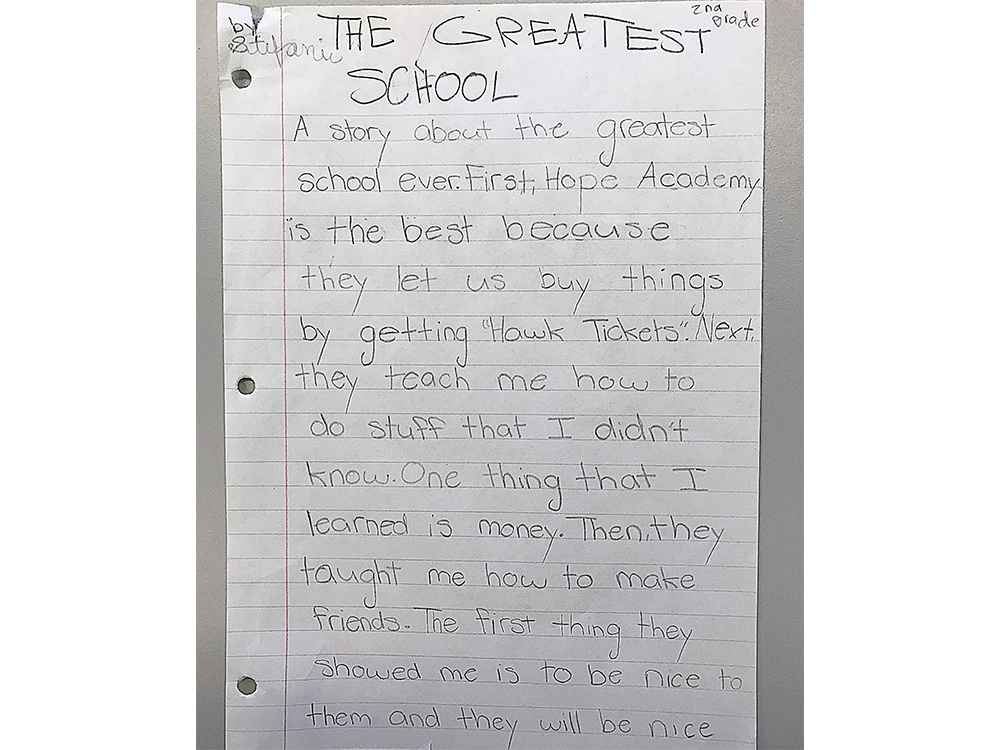 by THE GREATEST 2nd grade
Stefanie
SCHOOL
A story about the greatest
school ever. First, Hope Academy
is the best because
they let us buy things
by getting "Hawk Tickets". Next,
they teach me how to
do stuff that I didn't
know. One thing that I
learned is money. Then, they
taught me how to make
friends. The first thing they
showed me is to be nice to
them and they will be nice